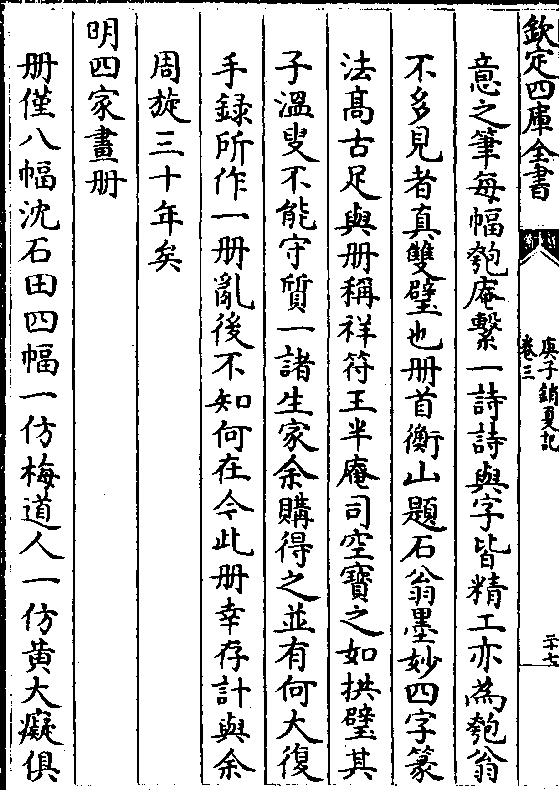 欽定四庫全書
庚子銷夏記
卷三
二十七
意之筆每幅匏庵繫一詩詩與字皆精工亦為匏翁
不多見者真雙璧也册首衡山題石翁墨妙四字篆
法髙古足與册稱祥符王半庵司空寳之如拱璧其
子溫叟不能守質一諸生家余購得之並有何大復
手録所作一册亂後不知何在今此册幸存計與余
周旋三十年矣
明四家畫册
册僅八幅沈石田四幅一仿梅道人一仿黄大癡俱